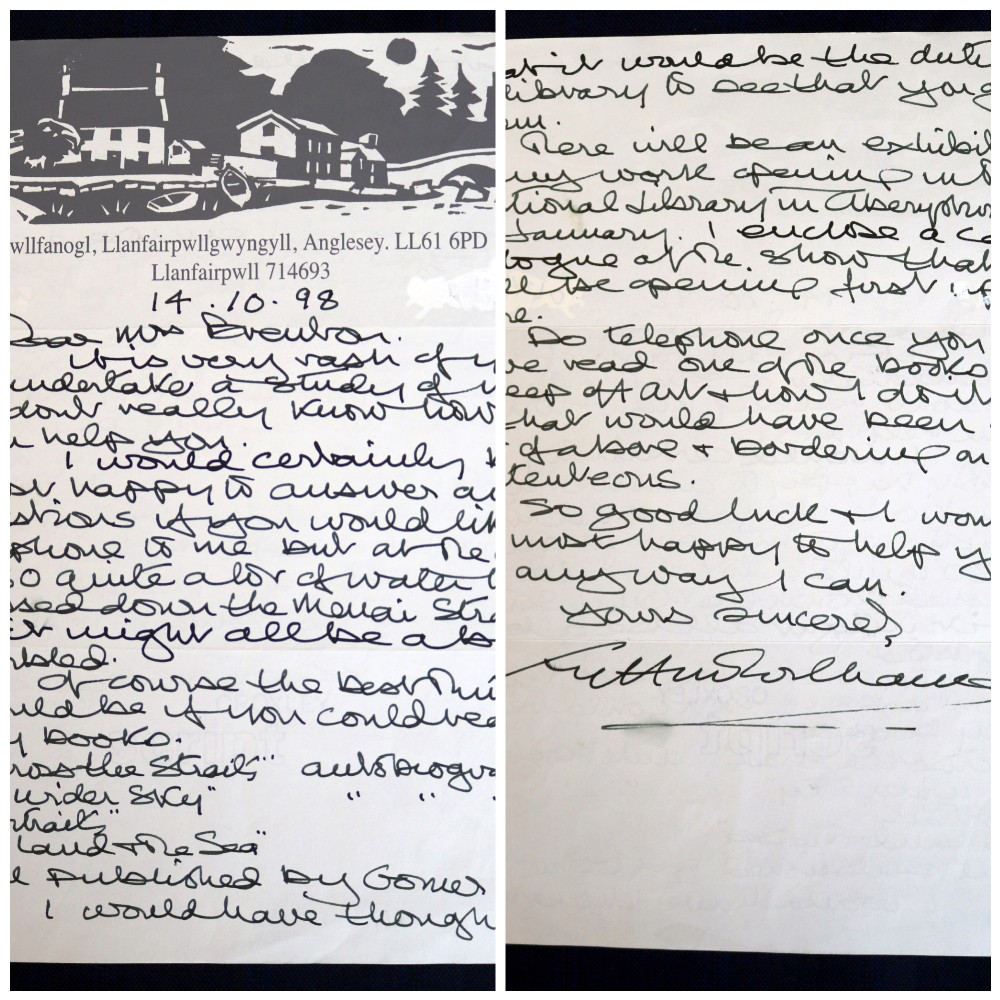 wllfanogl, Llanfairpwllgwyngyll, Anglesey. LL61 6PD
Llanfairpwll 714693
14.10.98
Dear Mrs
it is very rash of y
undertake a study of
dont really know how
help you.
I would certainly
happy to answer an
stions if you would lik
phone to me but at the
so quite a lot of water
sed down the Menai Stra
it might all be a b
rbled.
Of course the best thi
uld be if you could rea
y books.
ross the Straits" autobiogra
wider Sky" " "
rtraits"
Land & the Sea"
l published by Gomer
I would have though
at it would be the duty
library to see that you g
em.
There will be an exhibi
my work opening in t
tional Library in Aberystw
January. I enclose a ca
logue of the show that
ll be opening first
re.
Do telephone once you
ve read one of the books
eep of Art & how I do it
hat would have been
of a bore & bordering on
tenteous.
So good luck & I wou
most happy to help y
any way I can.
Yours sincerely